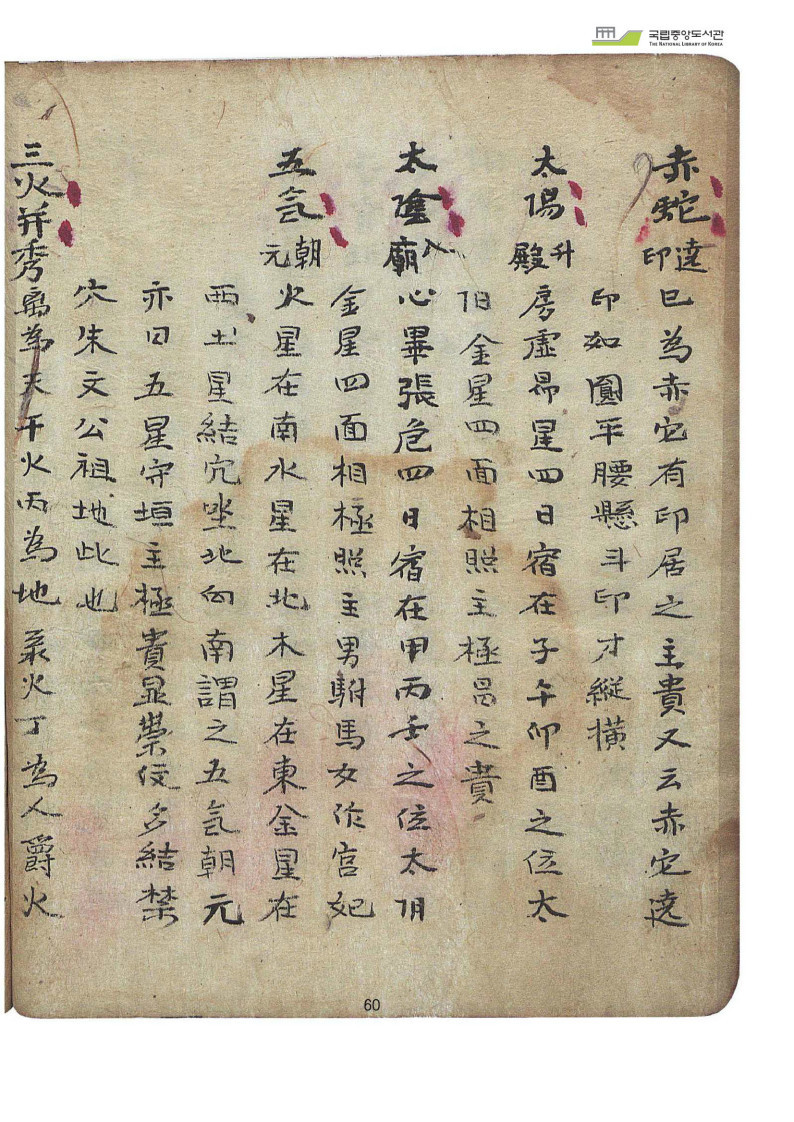 국립중앙도서관
THE NATIONAL LIBRARY OF KOREA
赤蛇遶印 巳為赤它有印居之主貴又云赤它遶
印如圓平腰懸斗印才縱橫
太陽升殿 房虛昴星四日宿在子午卯酉之位太
阳金星四面相照主極品之貴
太陰入廟 心畢張危四日宿在甲丙壬之位太阴
金星四面相極照主男駙馬女作宮妃
五气朝元 火星在南水星在北木星在東金星在
西土星結穴坐北向南謂之五气朝元
亦曰五星守垣主極貴显榮
結禁
穴朱文公祖地此也
三火并秀 离為天干火丙為地
火丁為人爵火
60